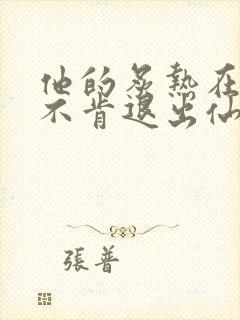 他的炙熱在
不肯退出仙
張普